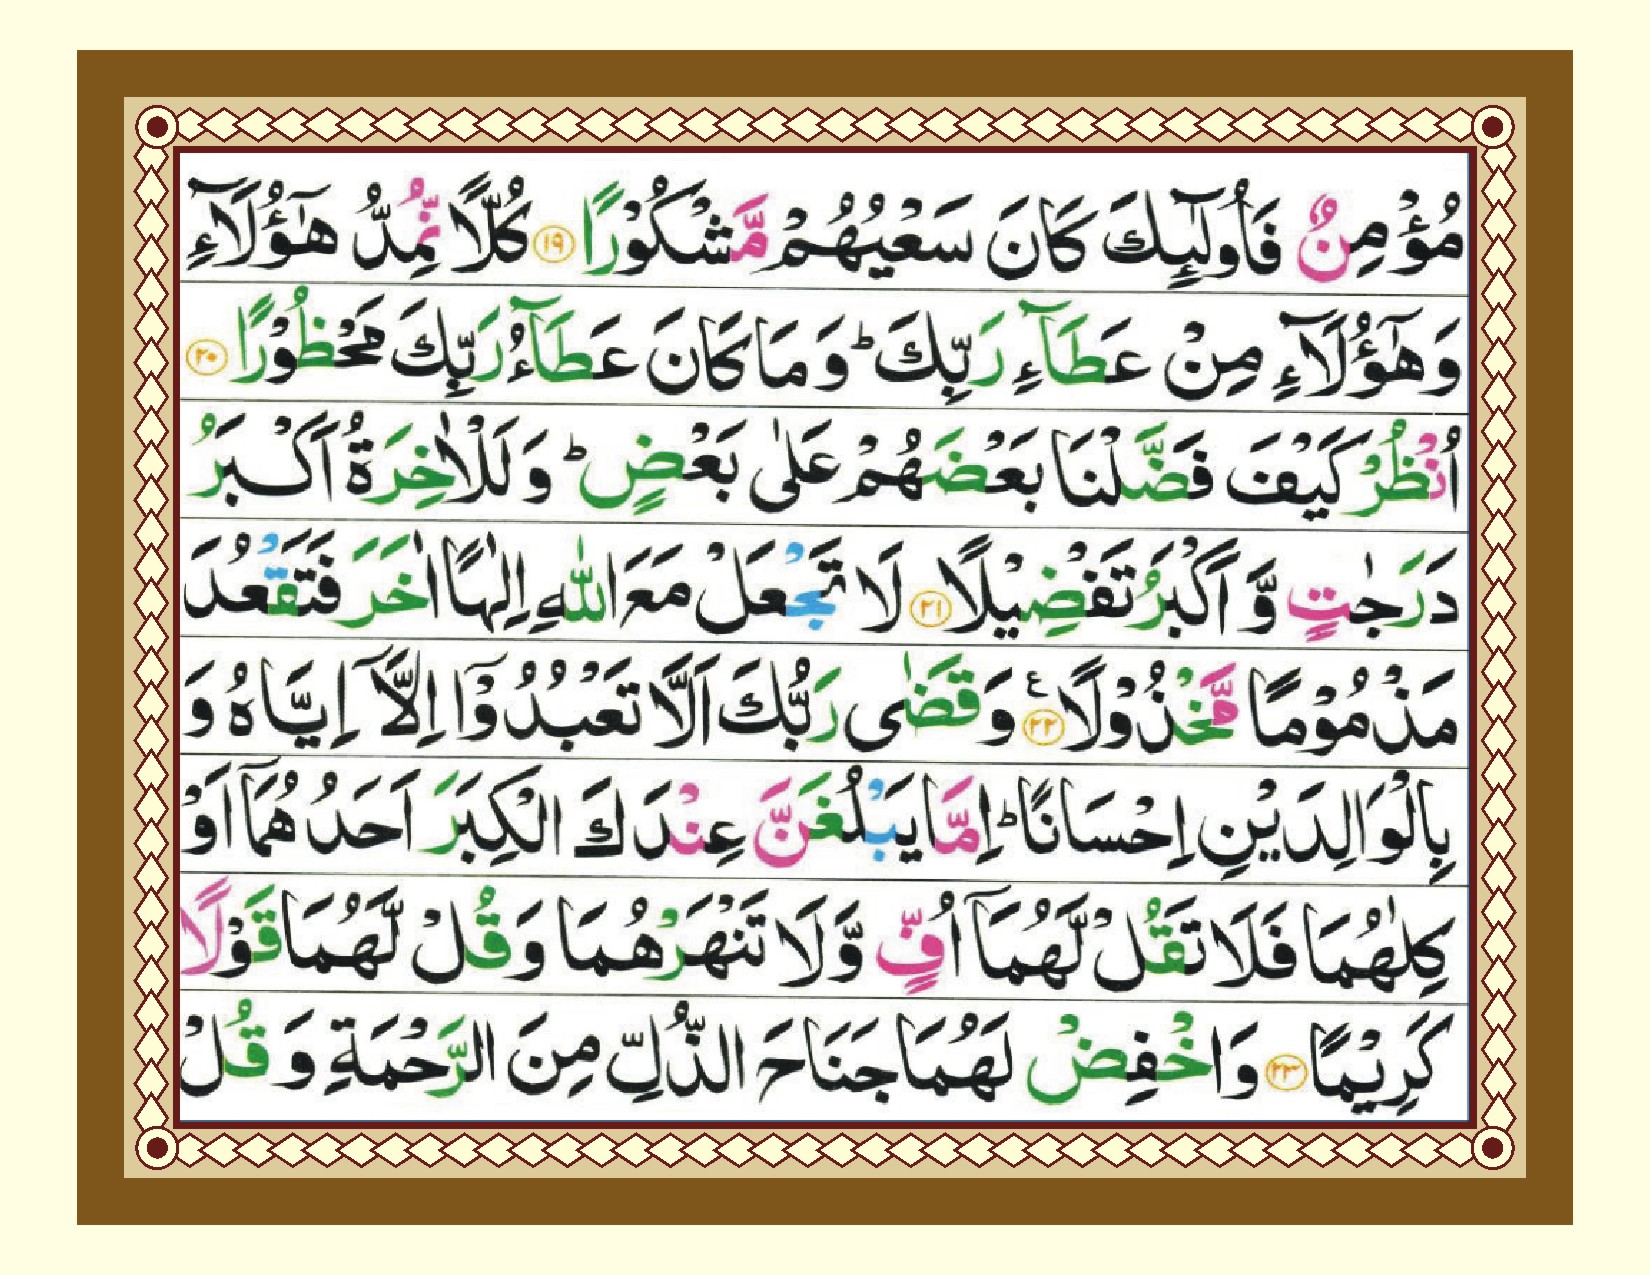 مُؤْمِنٌ فَاُولٰٓئِكَ كَانَ سَعْيُهُمْ مَّشْكُوْرًا ۝۱۹ كُلًّا نُّمِدُّ هٰٓؤُلَآءِ
وَهٰٓؤُلَآءِ مِنْ عَطَآءِ رَبِّكَ ؕ وَمَا كَانَ عَطَآءُ رَبِّكَ مَحْظُوْرًا ۝۲۰
اُنْظُرْ كَيْفَ فَضَّلْنَا بَعْضَهُمْ عَلٰى بَعْضٍ ؕ وَلَلْاٰخِرَةُ اَكْبَرُ
دَرَجٰتٍ وَّ اَكْبَرُ تَفْضِيْلًا ۝۲۱ لَا تَجْعَلْ مَعَ اللّٰهِ اِلٰهًا اٰخَرَ فَتَقْعُدَ
مَذْمُوْمًا مَّخْذُوْلًا ۝۲۲ ع وَقَضٰى رَبُّكَ اَلَّا تَعْبُدُوْٓا اِلَّآ اِيَّاهُ وَ
بِالْوَالِدَيْنِ اِحْسَانًا ؕ اِمَّا يَبْلُغَنَّ عِنْدَكَ الْكِبَرَ اَحَدُهُمَآ اَوْ
كِلٰهُمَا فَلَا تَقُلْ لَّهُمَآ اُفٍّ وَّلَا تَنْهَرْهُمَا وَقُلْ لَّهُمَا قَوْلًا
كَرِيْمًا ۝۲۳ وَاخْفِضْ لَهُمَا جَنَاحَ الذُّلِّ مِنَ الرَّحْمَةِ وَ قُلْ